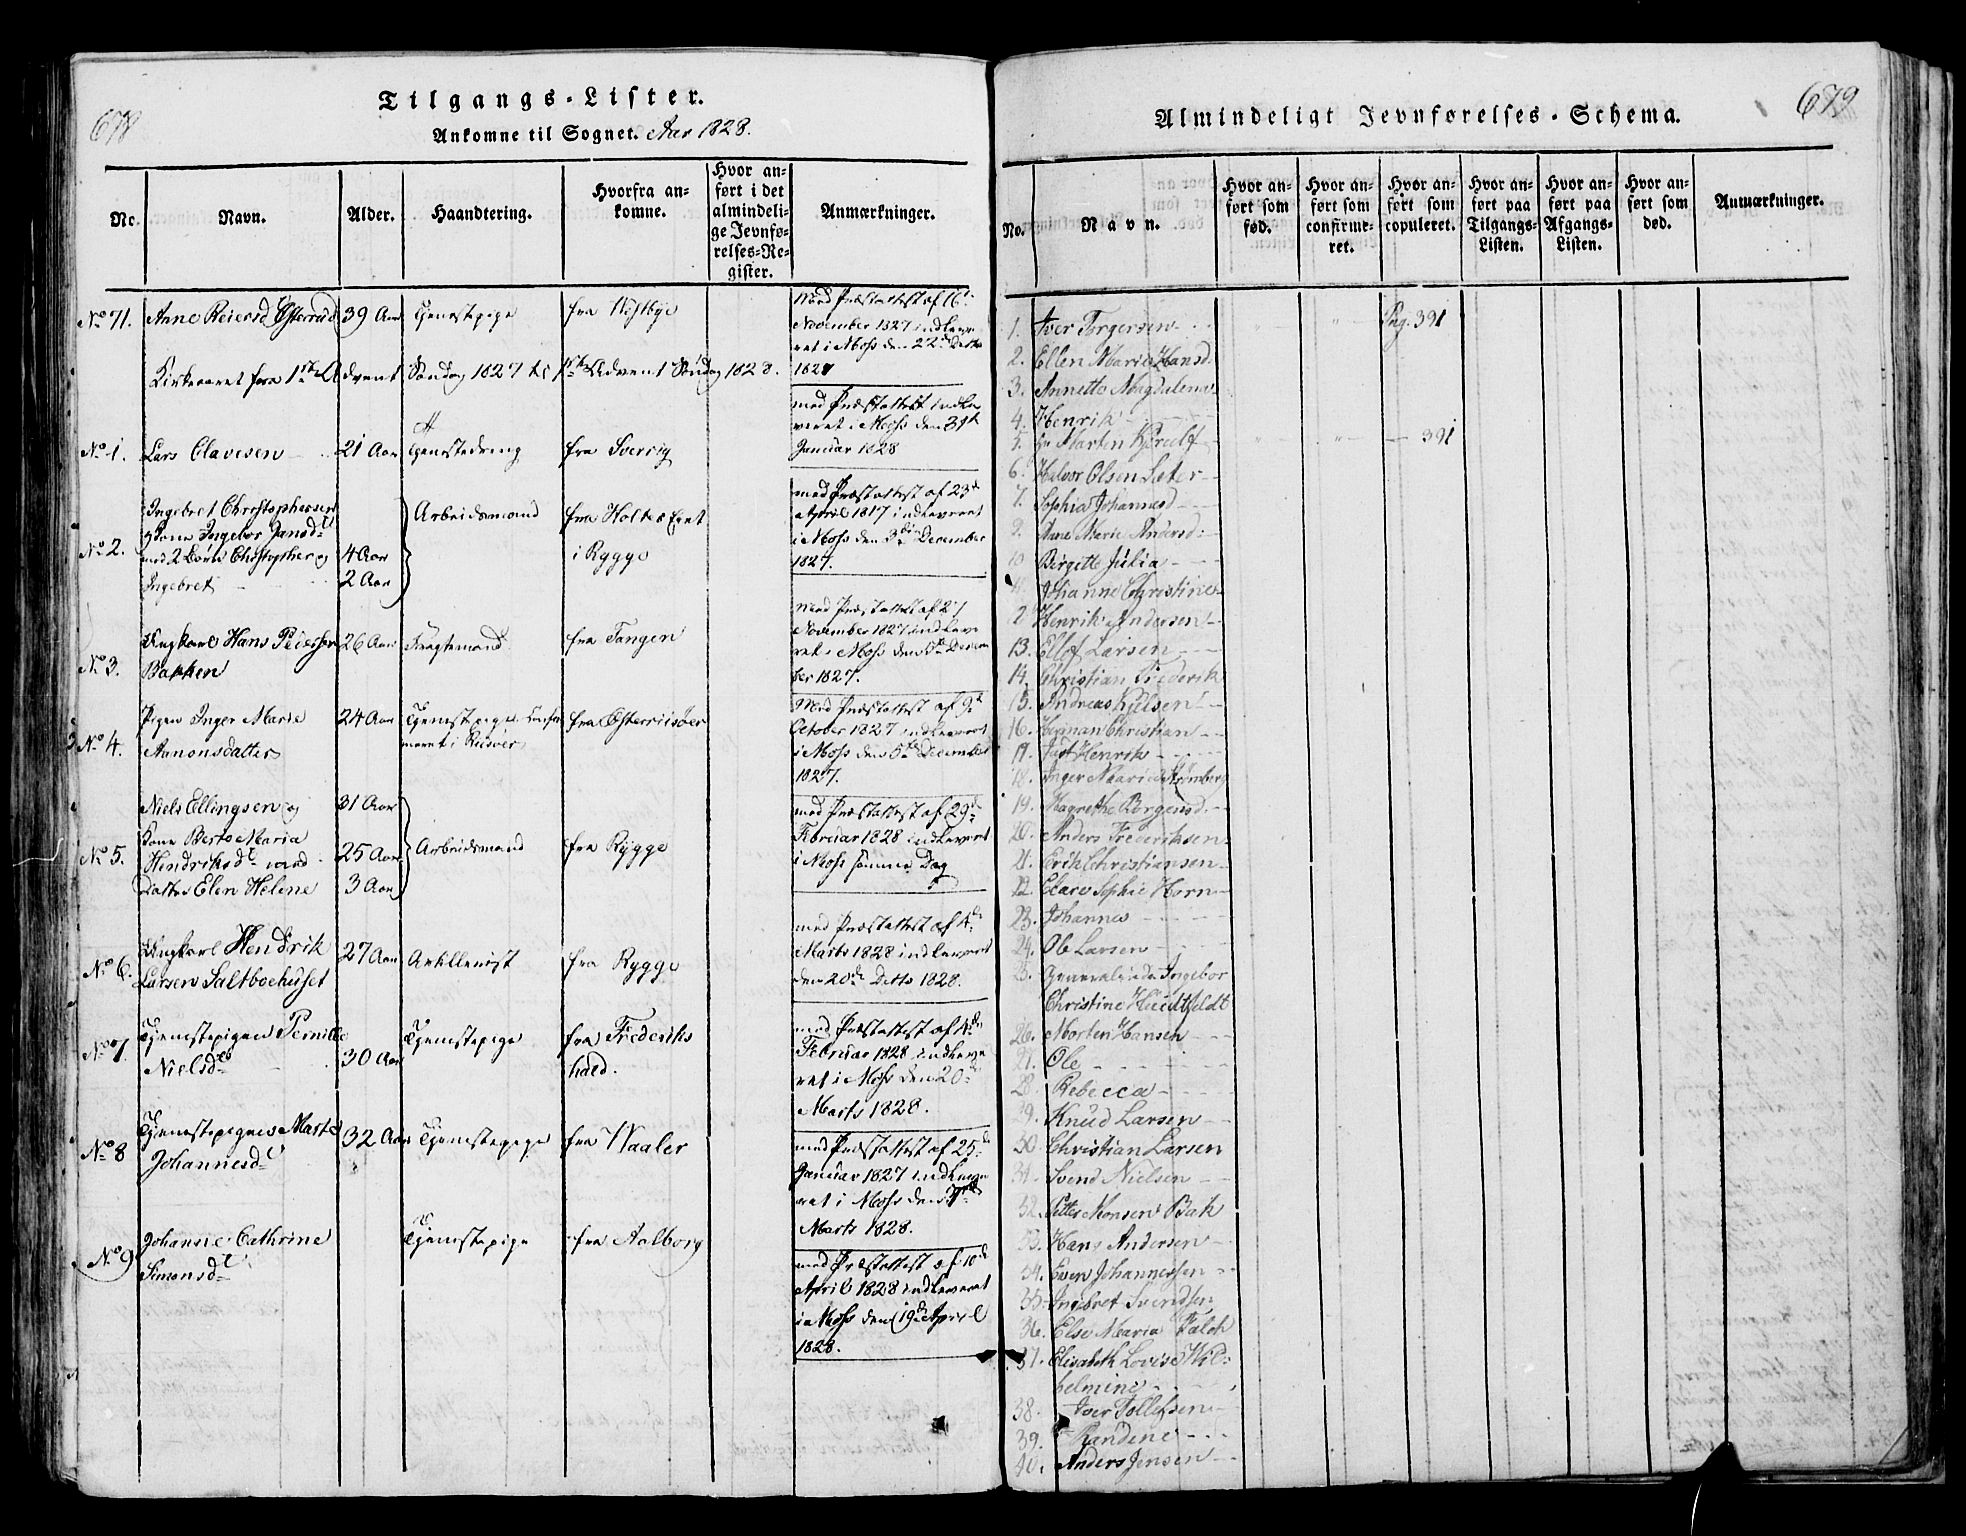 678
Tilgangs-Lister.
Ankomne til Sognet. Aar 1828.
No. Navn. Alder. Haandtering. Hvorfra ankomne. Hvor anført i det almindelige Jevnførelses-Register. Anmærkninger.
No 71. Anne Reiersd Østerrud 39 Aar Tjenestepige fra Westbye
med Præstattest af 16.
November 1827 indleve
ret i Moss den 22 Ditto
1827
Kirkeaaret fra 1ste Advent Søndag 1827 til 1ste Advent Søndag 1828.
No 1. Lars Olavesen 21 Aar Tjenestedreng fra Sverrig
med Præstattest indle
veret i Moss den 31te
Januar 1828
No 2. Ingebret Christophersen
Kone Ingebor Jansd
med 2 Børn Christopher og 4 Aar
Ingebret 2 Aar
Arbeidsmand
fra Holtes Eiet
i Rygge
med Præstattest af 23d
April 1817 indleveret
i Moss den 3die December
1827.
No 3. Ungkarl Hans Pedersen 26 Aar Fragtemand fra Tangen
Bakken
med Præstattest af 27
November 1827 indleve
ret i Moss den 5te Decem
ber 1827.
No 4. Pigen Inger Marie 24 Aar Tjenestepige confir fra Østerriisøer
Aamonsdatter meret i Riisøer
med Præstattest af 9d
October 1827 indleveret
i Moss den 5te December
1827.
No 5. Niels Ellingsen og 31 Aar
Kone Berte Maria
Hendriksd med 25 Aar
Datter Elen Helene 3 Aar
Arbeidsmand fra Rygge
med Præstattest af 29d
Februar 1828 indleveret
i Moss samme Dag
No 6. Ungkarl Hendrik 27 Aar Artillerist fra Rygge
Larsen Saltboehuset
med Præstattest af 4d
Marts 1828 indleveret
den 20de Ditto 1828.
No 7. Tjenestepigen Pernille
Nielsd 30 Aar Tjenestepige
fra Frederiks
hald.
med Præstattest af 4de
Februar 1828 indleve
ret i Moss den 20
Marts 1828.
No 8 Tjenestepigen Marte 32 Aar Tjenestepige fra Waaler
Johannesd
med Præstattest af 25d
Januar 1827 indleve
ret i Moss den
Marts 1828.
No 9 Johanne Cathrine Tjenestepige fra Aalborg
Simonsd
med Præstattest af 10d
April 1828 indleveret
i Moss den 19d April
1828.
679
Almindeligt Jevnførelses-Schema.
No. Navn. Hvor anført som fød. Hvor anført som confirmeret. Hvor anført som copuleret. Hvor anført paa Tilgangs-Listen. Hvor anført paa Afgangs-Listen. Hvor anført som død. Anmærkninger.
1. Iver Torgersen Pag. 391
2. Ellen Marie Hansd.
3. Annette Magdalena
4. Henrik
5. Marten 391
6. Halvor Olsen Sæter
7. Sophia Johannesd
9. Anne Marie Andersd
10 Birgitte Julia
11. Johanne Christine
12 Henrik Andersen
13. Ellef Larsen
14. Christian Frederik
15. Andreas Kjelsen
16. Herman Christian
17. Henrik
18. Inger Maria Strømberg
19. Magrethe Børgensd.
20. Anders Frederiksen
21. Erik Christiansen
22. Clare Sophie Horn
23. Johannes
24. Ole Larsen
25. Generalinde Ingebor
Christine Huidtfeldt
26. Morten Hansen
27. Ole
28. Rebecca
29. Knud Larsen
30 Christian Larsen
31. Svend Nielsen
32. Petter Monsen Bak
33. Hans Andersen
34. Even Johannessen
35. Ingebret Svendsen
36. Else Maria Falch
37. Elisabeth Lovise Wil-
helmine
38. Iver Tollefsen
39. Randine
40. Anders Jensen